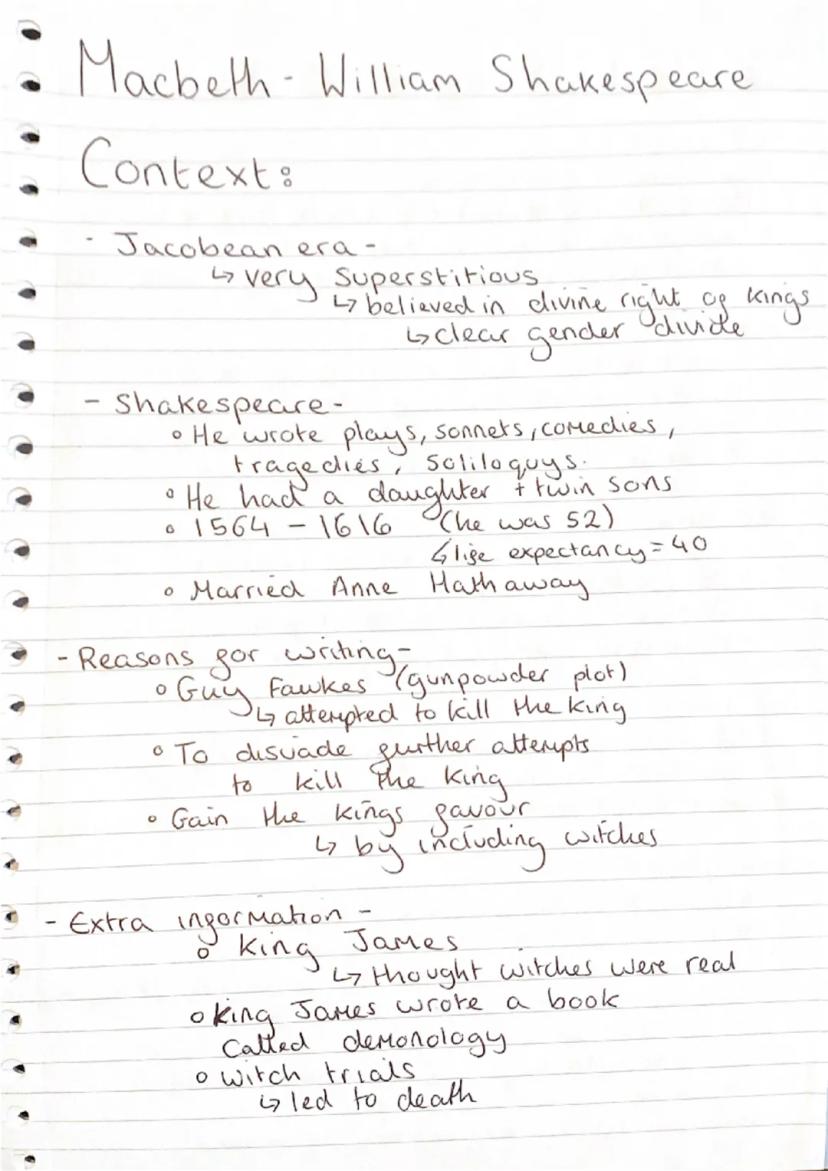 Macbeth - William Shakespeare
Context:
- Jacobean era -
↳ very Superstitious
↳ believed in divine right of kings
↳ clear gender divide
- Shakespeare -
° He wrote plays, sonnets, comedies,
tragedies, Soliloquys.
° He had a daughter + twin sons
° 1564 - 1616 (he was 52)
↳ life expectancy = 40
° Married Anne Hathaway
- Reasons for writing -
° Guy Fawkes (gunpowder plot)
↳ attempted to kill the king
° To disuade further attempts
to kill the king
° Gain the kings favour
↳ by including witches
- Extra information -
° king James
↳ thought witches were real
° king James wrote a book
Called demonology
° witch trials
↳ led to death